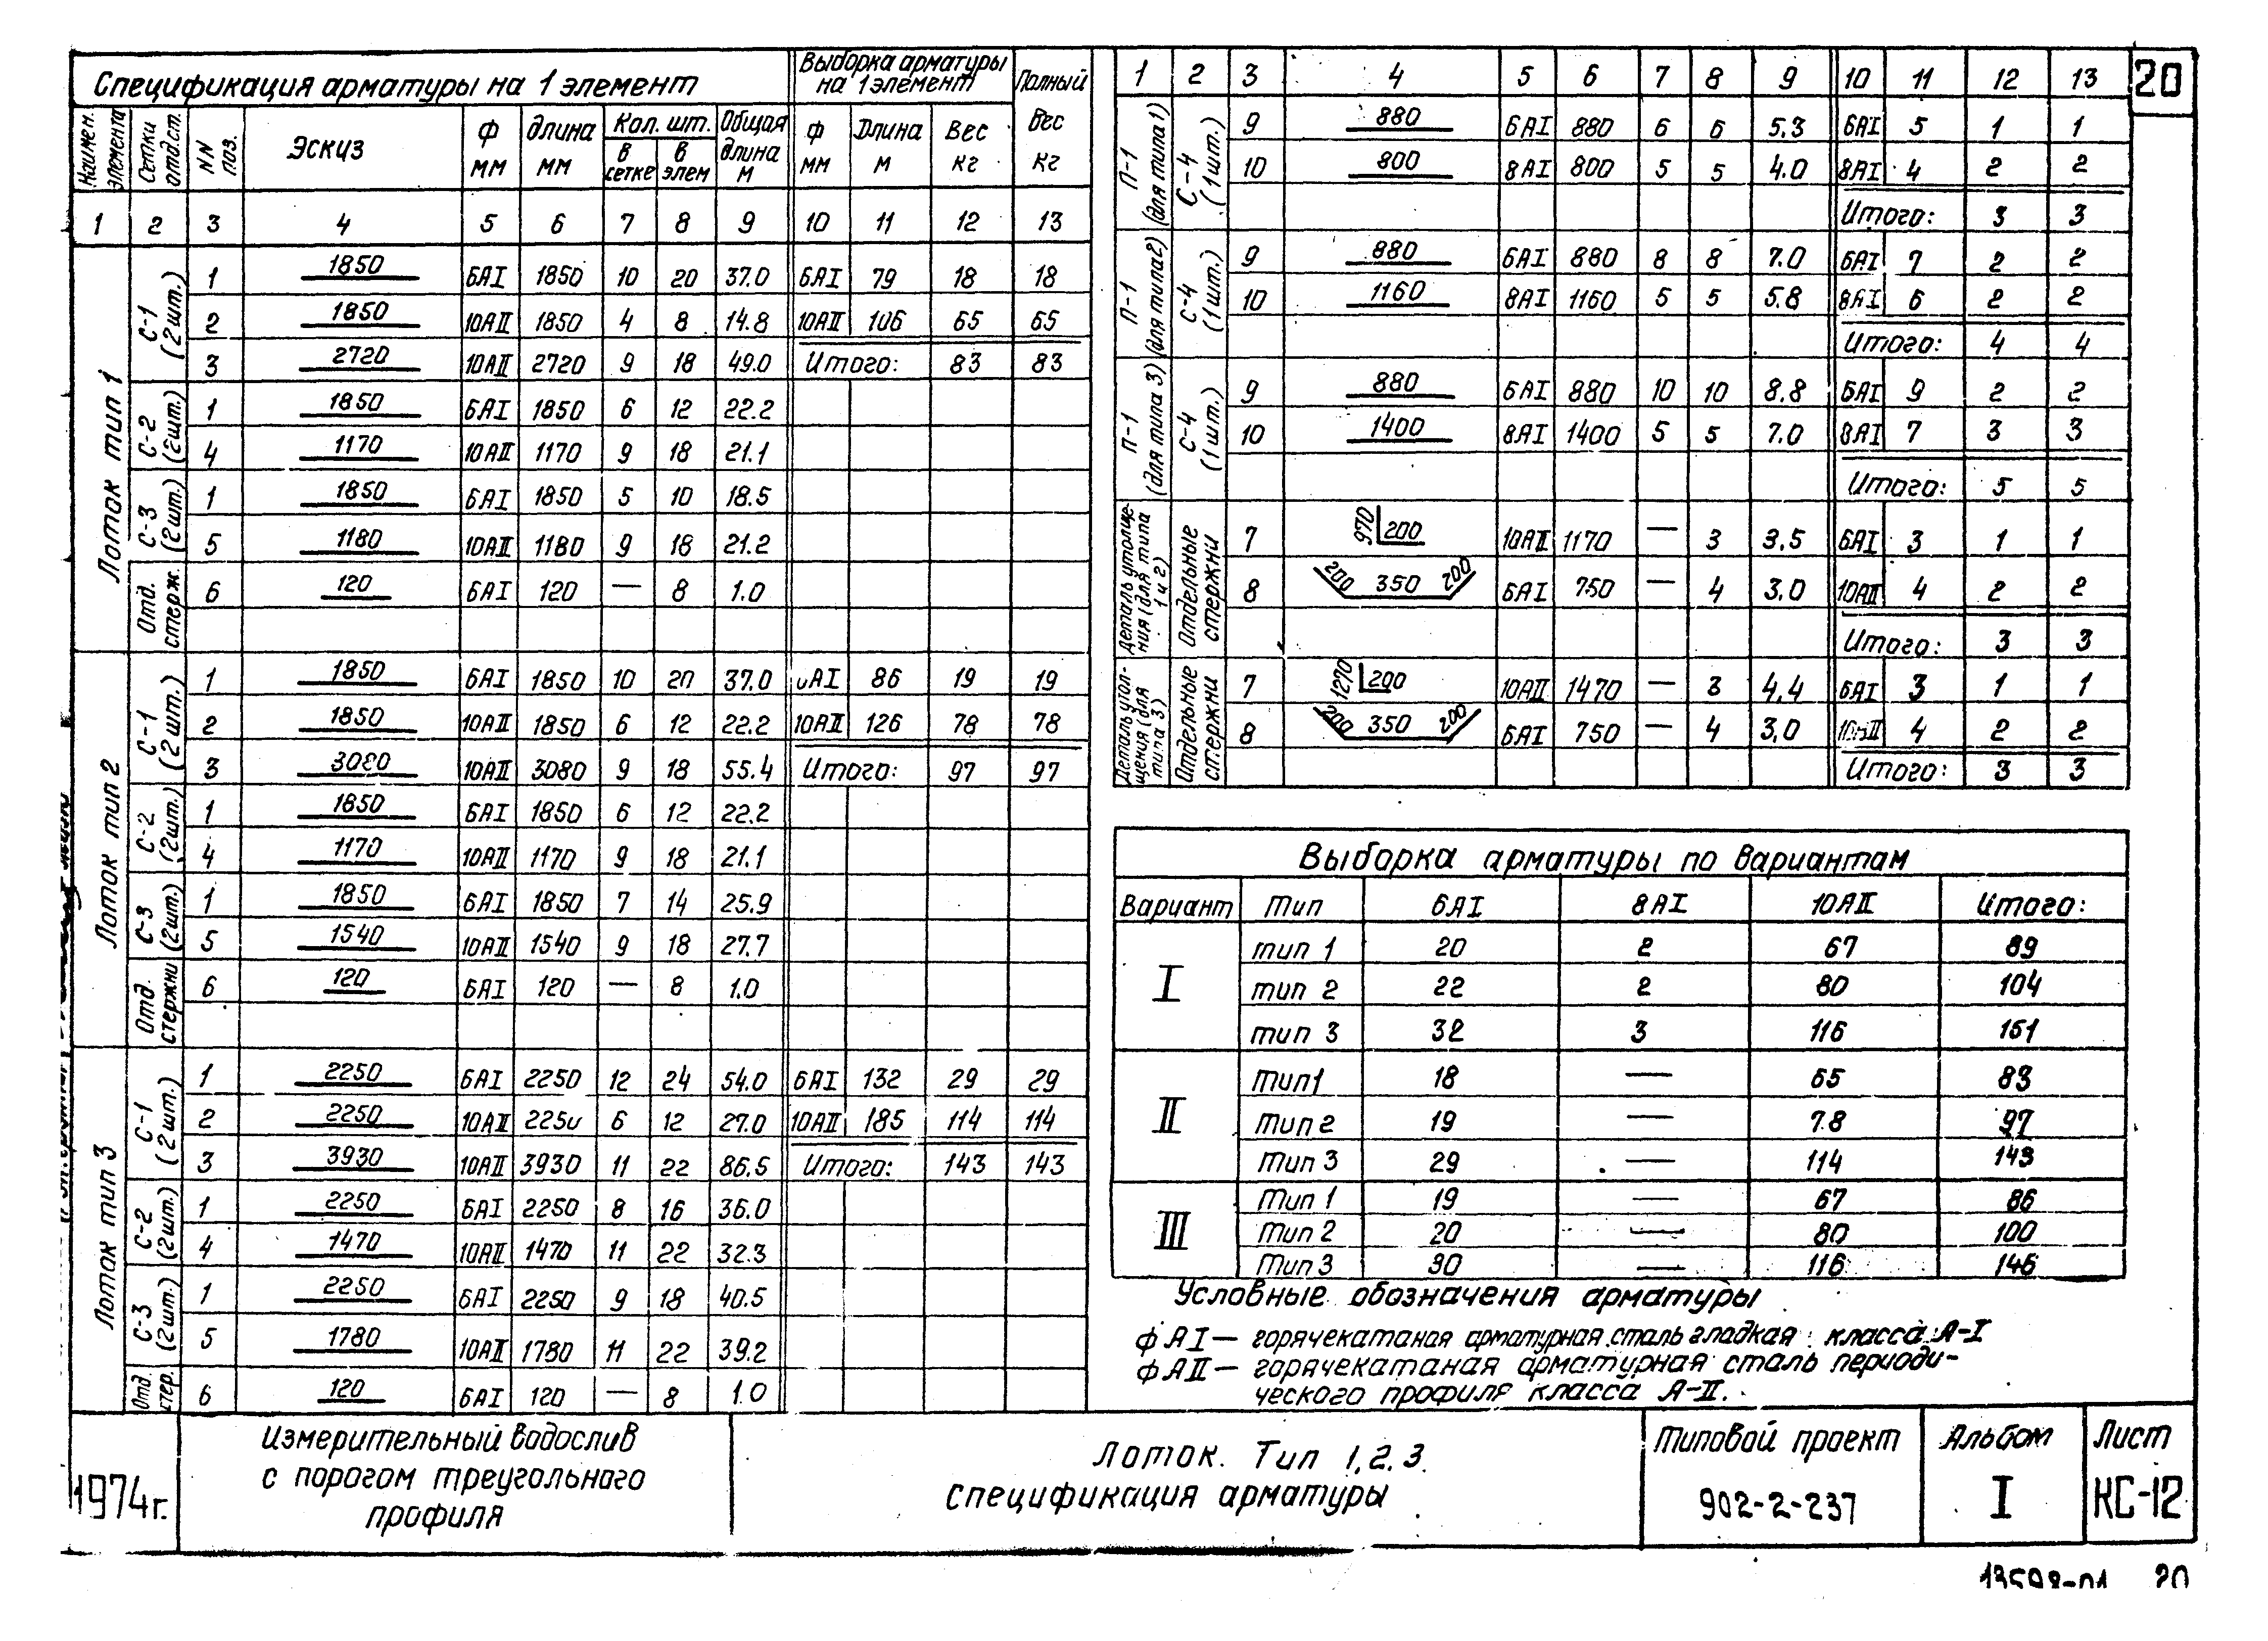 20
Спецификация арматуры на 1 элемент
Выборка арматуры на 1 элемент
Полный вес кг
Наимен. элемента
Сетки отд.ст.
NN поз.
Эскиз
ф мм
Длина мм
Кол. шт.
в сетке
в элем
Общая длина м
ф мм
Длина м
Вес кг
1 2 3 4 5 6 7 8 9 10 11 12 13
Лоток тип 1
С-1 (2шт.)
1 1850 6АI 1850 10 20 37.0 6АI 79 18 18
2 1850 10АII 1850 4 8 14.8 10АII 106 65 65
3 2720 10АII 2720 9 18 49.0 Итого: 83 83
С-2 (2шт.)
1 1850 6АI 1850 6 12 22.2
4 1170 10АII 1170 9 18 21.1
С-3 (2шт.)
1 1850 6АI 1850 5 10 18.5
5 1180 10АII 1180 9 18 21.2
Отд. стерж.
6 120 6АI 120 — 8 1.0
Лоток тип 2
С-1 (2шт.)
1 1850 6АI 1850 10 20 37.0 6АI 86 19 19
2 1850 10АII 1850 6 12 22.2 10АII 126 78 78
3 3080 10АII 3080 9 18 55.4 Итого: 97 97
С-2 (2шт.)
1 1850 6АI 1850 6 12 22.2
4 1170 10АII 1170 9 18 21.1
С-3 (2шт.)
1 1850 6АI 1850 7 14 25.9
5 1540 10АII 1540 9 18 27.7
Отд. стержни
6 120 6АI 120 — 8 1.0
Лоток тип 3
С-1 (2шт.)
1 2250 6АI 2250 12 24 54.0 6АI 132 29 29
2 2250 10АII 2250 6 12 27.0 10АII 185 114 114
3 3930 10АII 3930 11 22 86.5 Итого: 143 143
С-2 (2шт.)
1 2250 6АI 2250 8 16 36.0
4 1470 10АII 1470 11 22 32.3
С-3 (2шт.)
1 2250 6АI 2250 9 18 40.5
5 1780 10АII 1780 11 22 39.2
Отд. стер.
6 120 6АI 120 — 8 1.0
1 2 3 4 5 6 7 8 9 10 11 12 13
П-1 (для типа 1)
С-4 (1шт.)
9 880 6АI 880 6 6 5.3 6АI 5 1 1
10 800 8АI 800 5 5 4.0 8АI 4 2 2
Итого: 3 3
П-1 (для типа 2)
С-4 (1шт.)
9 880 6АI 880 8 8 7.0 6АI 7 2 2
10 1160 8АI 1160 5 5 5.8 8АI 6 2 2
Итого: 4 4
П-1 (для типа 3)
С-4 (1шт.)
9 880 6АI 880 10 10 8.8 6АI 9 2 2
10 1400 8АI 1400 5 5 7.0 8АI 7 3 3
Итого: 5 5
Деталь утолщения (для типа 1 и 2)
Отдельные стержни
7 970 200 10АII 1170 — 3 3.5 6АI 3 1 1
8 200 350 200 6АI 750 — 4 3.0 10АII 4 2 2
Итого: 3 3
Деталь утолщения (для типа 3)
Отдельные стержни
7 1270 200 10АII 1470 — 3 4.4 6АI 3 1 1
8 200 350 200 6АI 750 — 4 3.0 10АII 4 2 2
Итого: 3 3
Выборка арматуры по вариантам
Вариант Тип 6АI 8АI 10АII Итого:
I
тип 1 20 2 67 89
тип 2 22 2 80 104
тип 3 32 3 116 151
II
Тип 1 18 — 65 83
Тип 2 19 — 7.8 97
Тип 3 29 — 114 143
III
Тип 1 19 — 67 86
Тип 2 20 — 80 100
Тип 3 30 — 116 146
Условные обозначения арматуры
ф АI — горячекатаная арматурная сталь гладкая класса А-I
ф АII — горячекатаная арматурная сталь периоди-
ческого профиля класса А-II.
1974г.
Измерительный водослив
с порогом треугольного
профиля
Лоток. Тип 1, 2, 3.
Спецификация арматуры
Типовой проект
902-2-237
Альбом
I
Лист
КС-12
13598-01 20